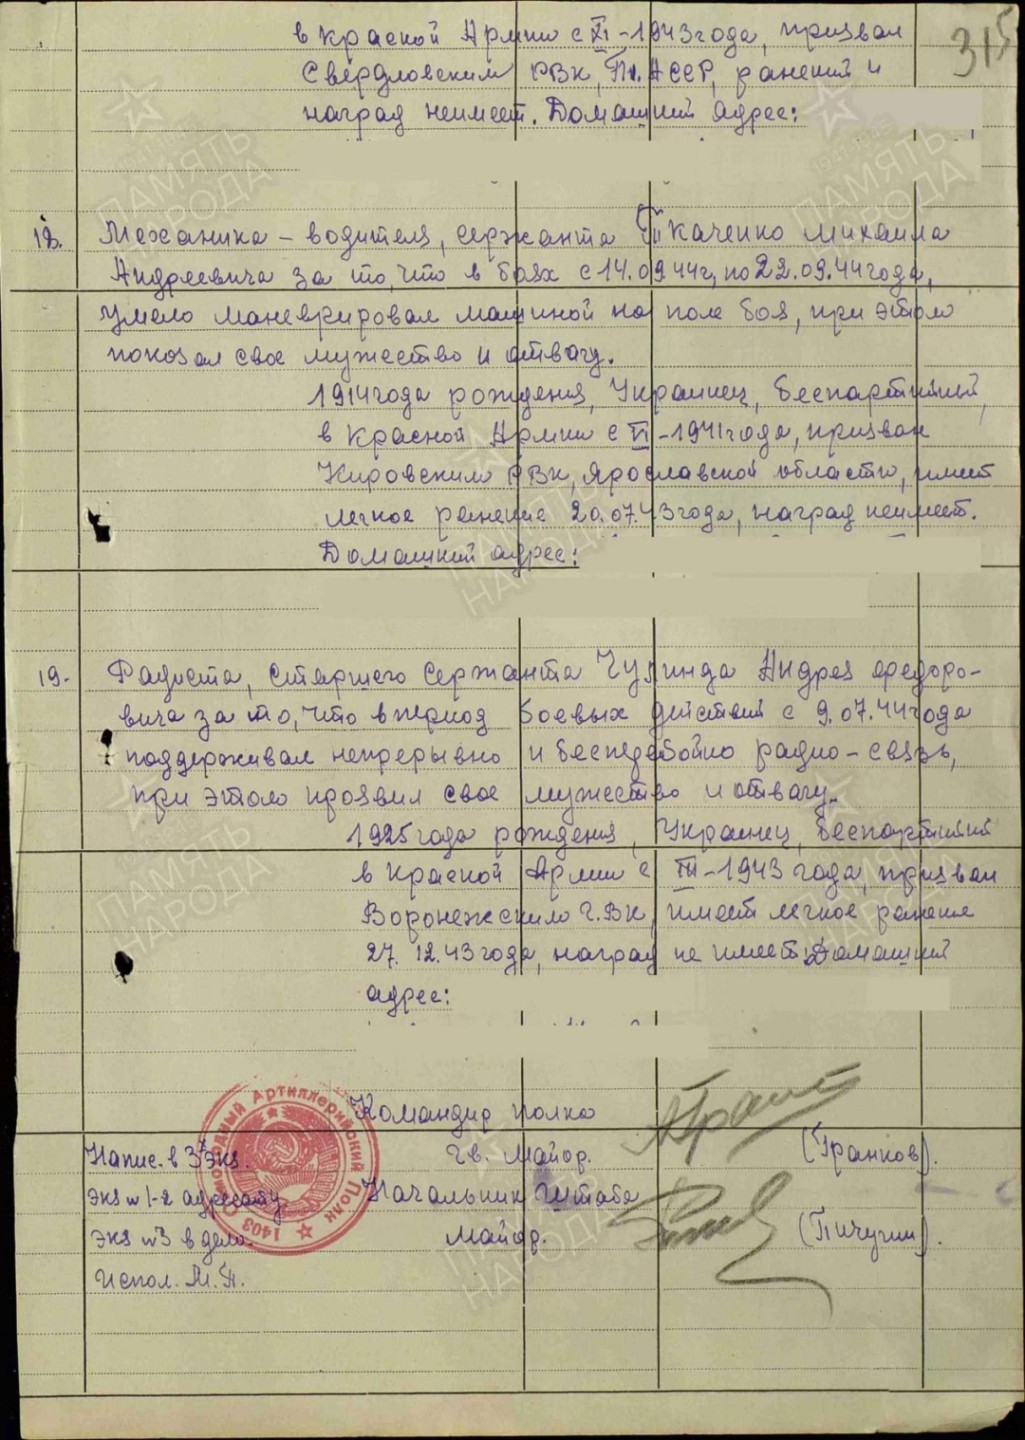 315
в Красной Армии с XI-1943 года, призван
Свердловским РВК, Тт. АССР, ранений и
наград неимеет. Домашний адрес:
18. Механика-водителя, сержанта Ткаченко Михаила
Андреевича за то, что в боях с 14.09.44г, по 22.09.44 года,
умело маневрировал машиной на поле боя, при этом
показал свое мужество и отвагу.
1914 года рождения, Украинец, беспартийный,
в Красной Армии с VI-1941 года, призван
Кировским РВК, Ярославской области, имеет
легкое ранение 20.07.43 года, наград неимеет.
Домашний адрес:
19. Радиста, старшего сержанта Чулинда Андрея Федоро-
вича за то, что в период боевых действий с 9.07.44 года
поддерживал непрерывно и бесперебойно радио-связь,
при этом проявил свое мужество и отвагу.
1925 года рождения, Украинец, беспартийный
в Красной Армии с III-1943 года, призван
Воронежским Г.ВК, имеет легкое ранение
27.12.43 года, наград не имеет. Домашний
адрес:
Командир полка
Гв. Майор. (Гранков).
Начальник Штаба
Майор. (Пичугин).
Напис. в 3х экз.
экз № 1-2 адресату
экз №3 в дело.
Испол. М.П.
Самоходный Артиллерийский Полк
1403
ПАМЯТЬ
НАРОДА